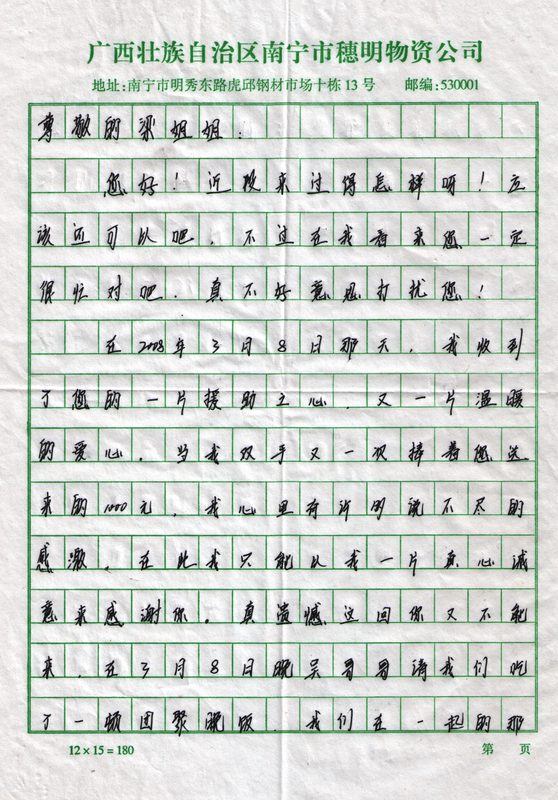 广西壮族自治区南宁市穗明物资公司
地址:南宁市明秀东路虎邱钢材市场十栋13号 邮编:530001
尊敬的梁姐姐:
您好!近段来过得怎样呀!应
该还可以吧,不过在我看来您一定
很忙对吧.真不好意思打扰您!
在2008年3月8日那天,我收到
了您的一片援助之心,又一片温暖
的爱心.当我双手又一次捧着您送
来的1000元,我心里有许多说不尽的
感激,在此我只能以我一片真心诚
意来感谢你。真遗憾这回你又不能
来,在3月8日晚吴哥哥请我们吃
了一顿团聚晚饭.我们在一起的那
12×15=180 第 页